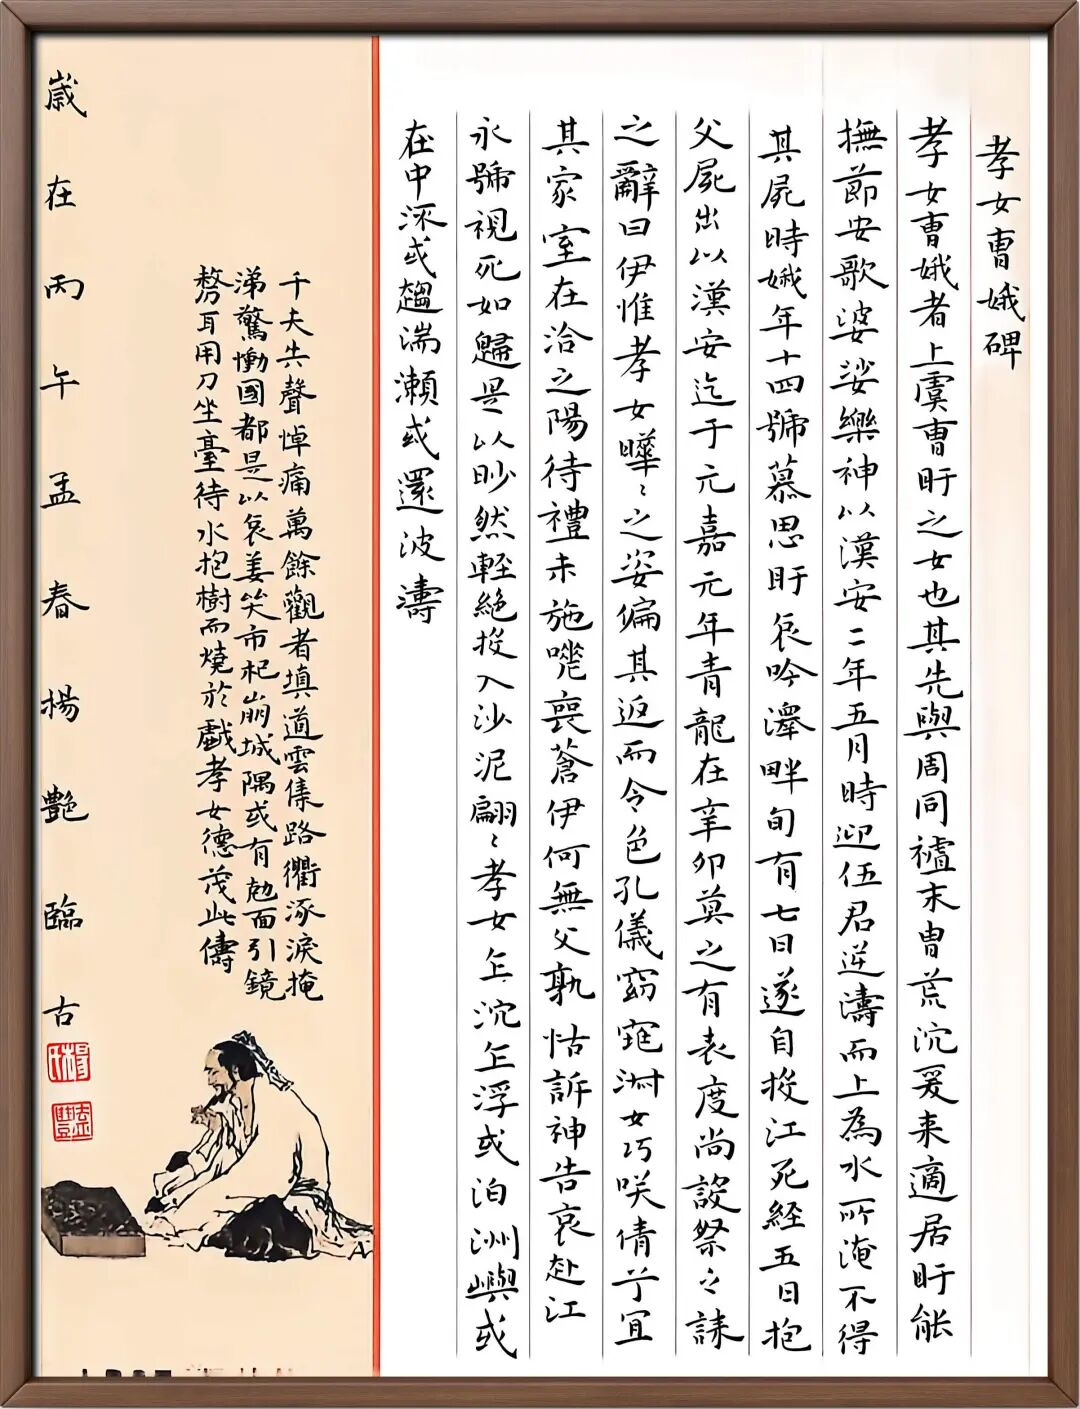 孝女曹娥碑
孝女曹娥者上虞曹盱之女也其先與周同禮末胄荒沉爰来適居盱能
撫節安歌婆娑樂神以漢安二年五月時迎伍君逆濤而上為水所淹不得
其屍時娥年十四號慕思盱哀吟澤畔旬有七日遂自投江死経五日抱
父屍出以漢安迄于元嘉元年青龍在辛卯莫之有表度尚設祭之誄
之辭曰伊惟孝女曄〻之姿偏其返而令色孔儀窈窕淑女巧咲倩兮宜
其家室在洽之陽待禮未施嗟喪蒼伊何無父孰怙訴神告哀赴江
永號視死如歸是以眇然輕絶投入沙泥翩〻孝女乍沉乍浮或泊洲嶼或
在中流或趨湍瀬或還波濤
千夫失聲悼痛萬餘觀者填道雲集路衢流淚掩
涕驚慟國都是以哀姜哭市杞崩城隅或有剋面引鏡
剺耳用刀坐臺待水抱樹而燒於戲孝女德茂此儔
歲在丙午孟春楊艷臨古